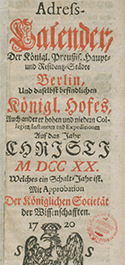 Adreß-
Calender,
Der Königl. Preußis. Haupt-
und Residentz-Städte
Berlin,
Und daselbst befindlichen
Königl. Hofes,
Auch anderer hohen und niedren Col-
legien, Instantien und Expeditionen
Auf das Jahr
CHRISTI
M DCC XX.
Welches ein Schalt-Jahr ist.
Mit Approbation
Der Königlichen Societät
der Wissenschafften.
17 20